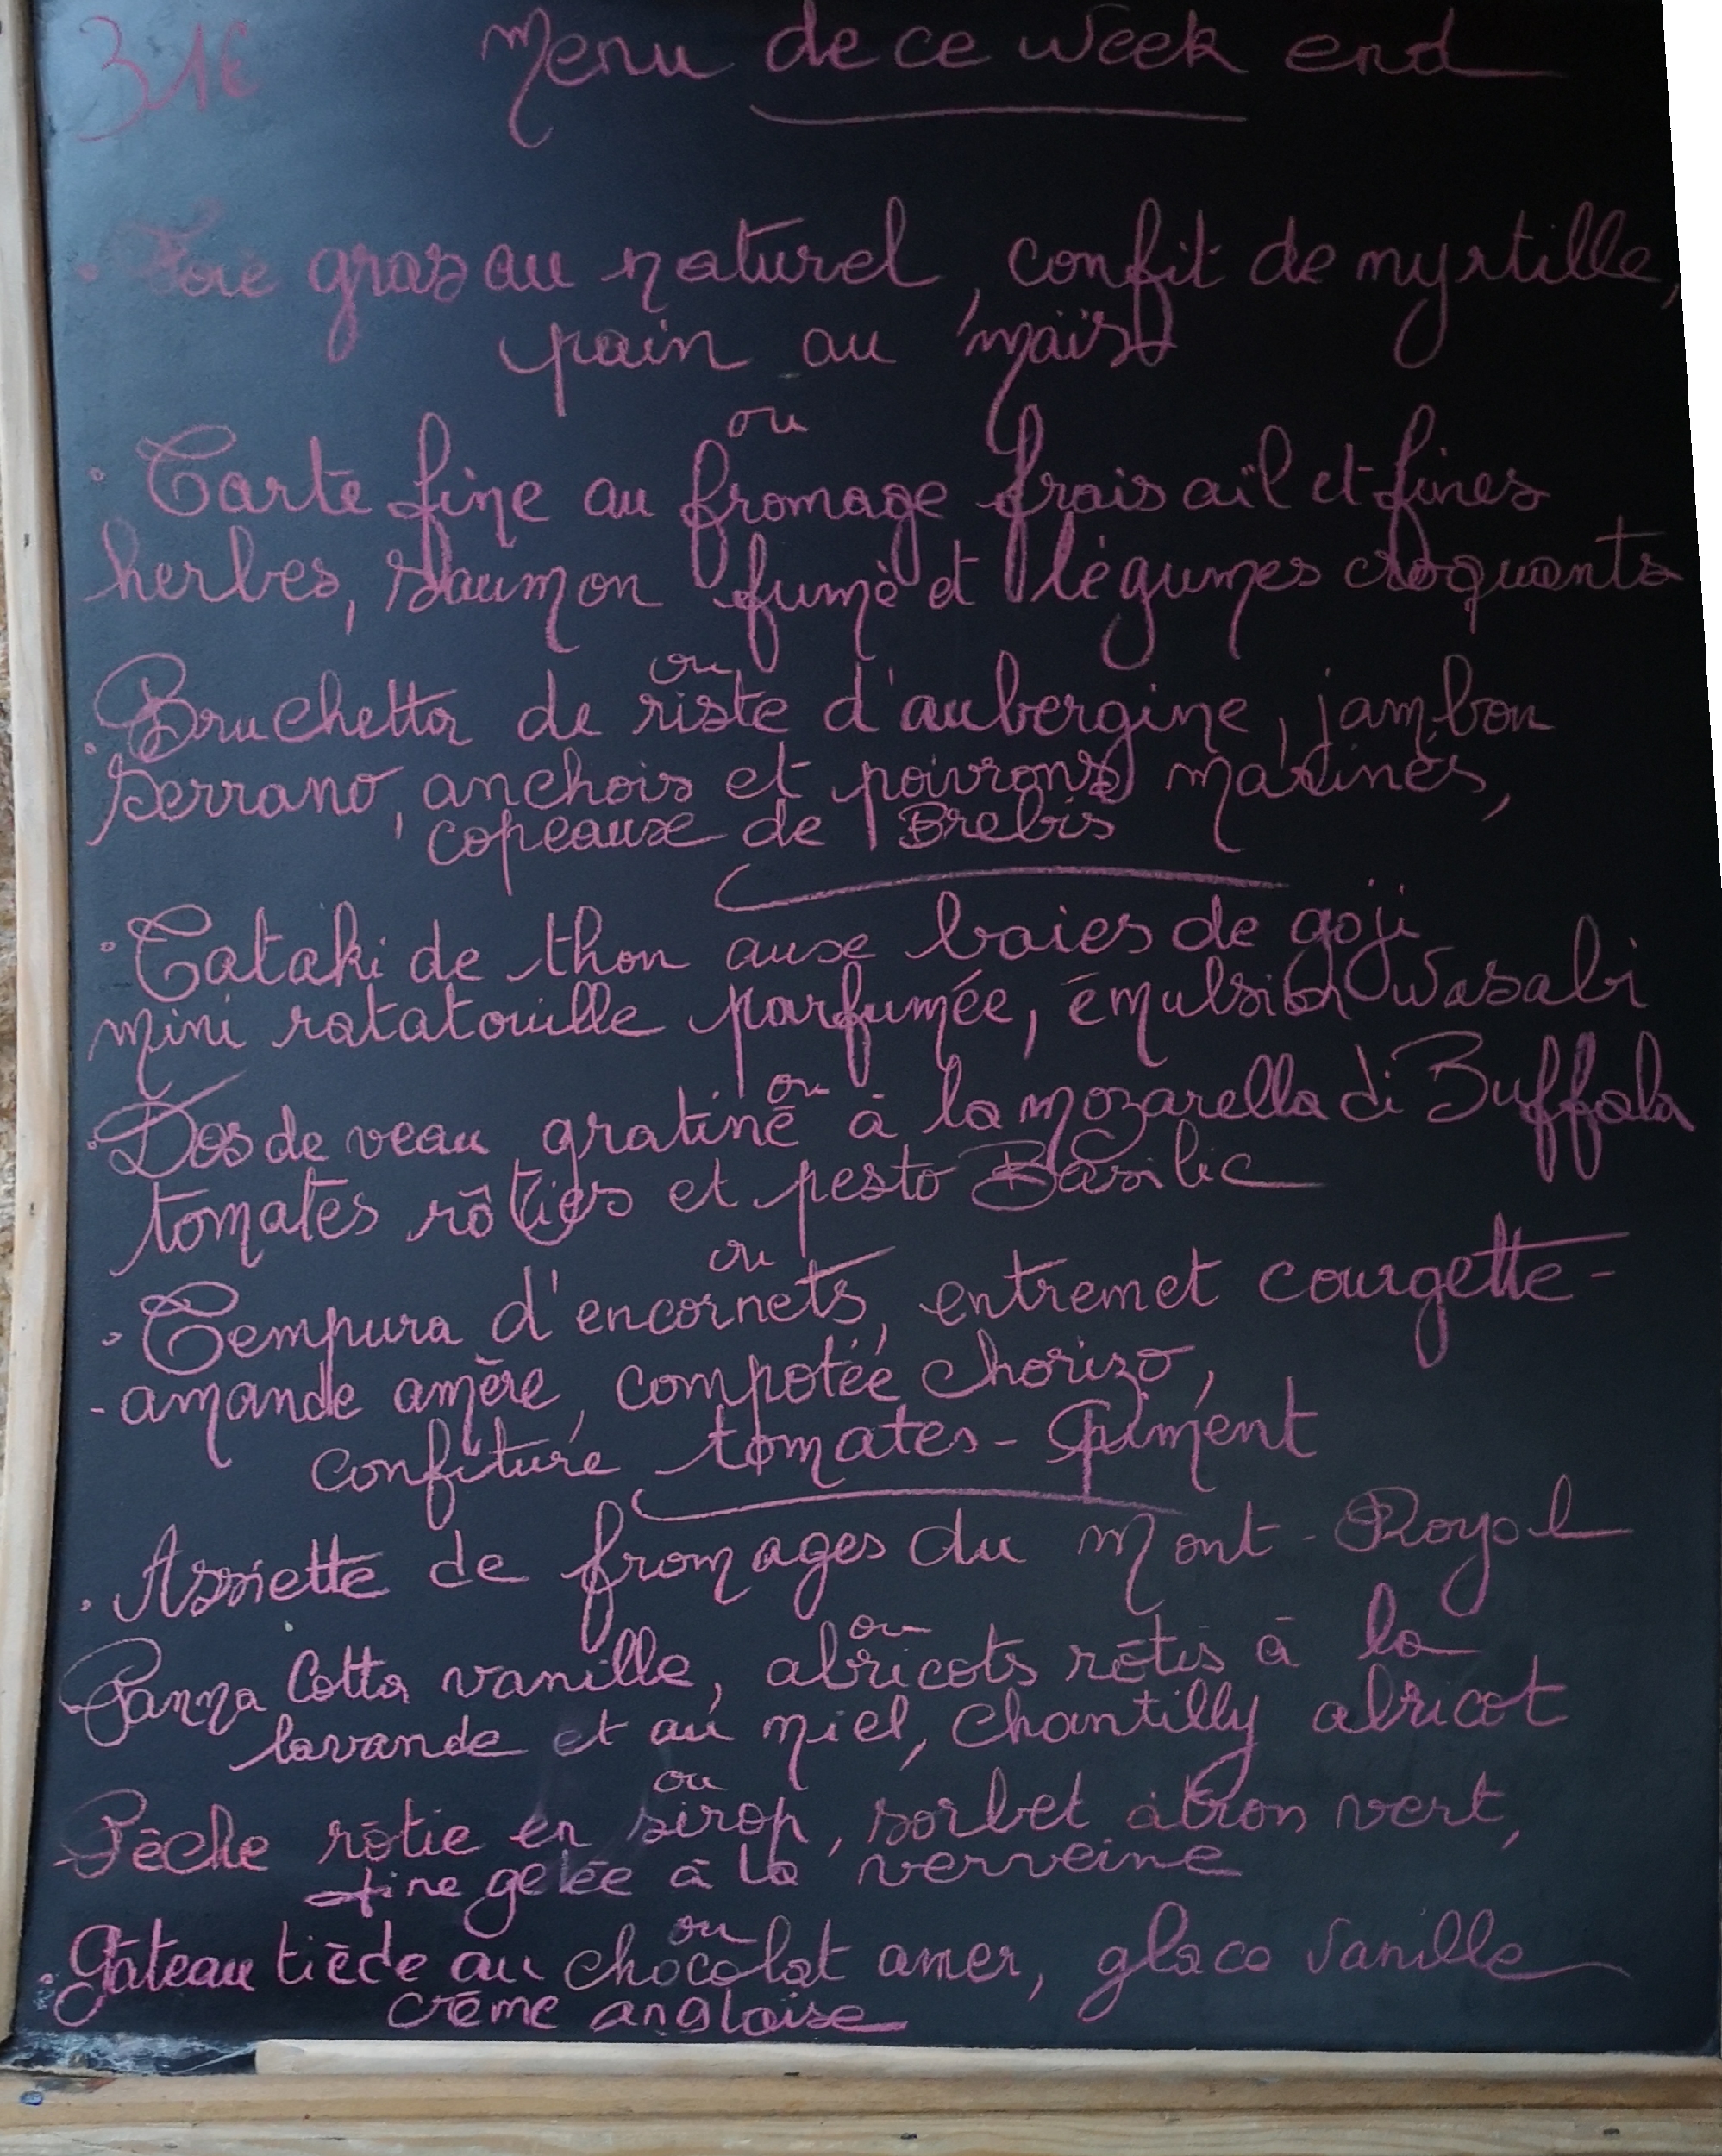 31€ Menu de ce week end
. Foie gras au naturel, confit de myrtille,
pain au maïs
ou
. Tarte fine au fromage frais aïl et fines
herbes, saumon fumé et légumes croquants
ou
. Bruchetta de riste d'aubergine, jambon
serrano, anchois et poivrons marinés,
copeaux de Brebis
. Tataki de thon aux baies de goji
mini ratatouille parfumée, émulsion wasabi
ou
. Dos de veau gratiné à la mozarella di Buffala
tomates rôties et pesto Basilic
ou
. Tempura d'encornets, entremet courgette-
-amande amère, compotée chorizo,
confiture tomates-piment
. Assiette de fromages du Mont-Royal
ou
Panna Cotta vanille, abricots rôtis à la
lavande et au miel, chantilly abricot
ou
Pêche rôtie en sirop, sorbet citron vert,
fine gelée à la verveine
ou
. Gâteau tiède au chocolat amer, glace vanille
crème anglaise